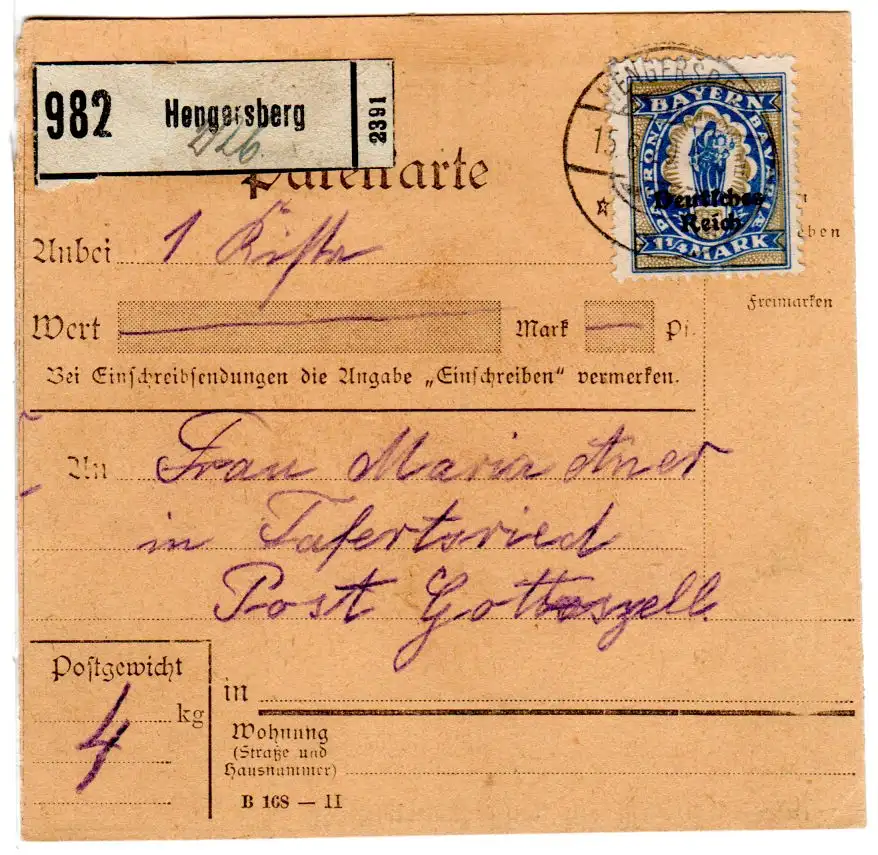 982 Hengersberg 2391
HENGERSB
15.
BAYERN
PATRONA BAVARIAE
Deutsches
Reich
1¼ MARK
Paketkarte
Anbei 1 Kiste
eben
Freimarken
Wert Mark Pf.
Bei Einschreibsendungen die Angabe „Einschreiben“ vermerken.
An Frau Maria Aner
in Tafertsried
Post Gotteszell
Postgewicht
4 kg
in
Wohnung
(Straße und
Hausnummer)
B 168 — II